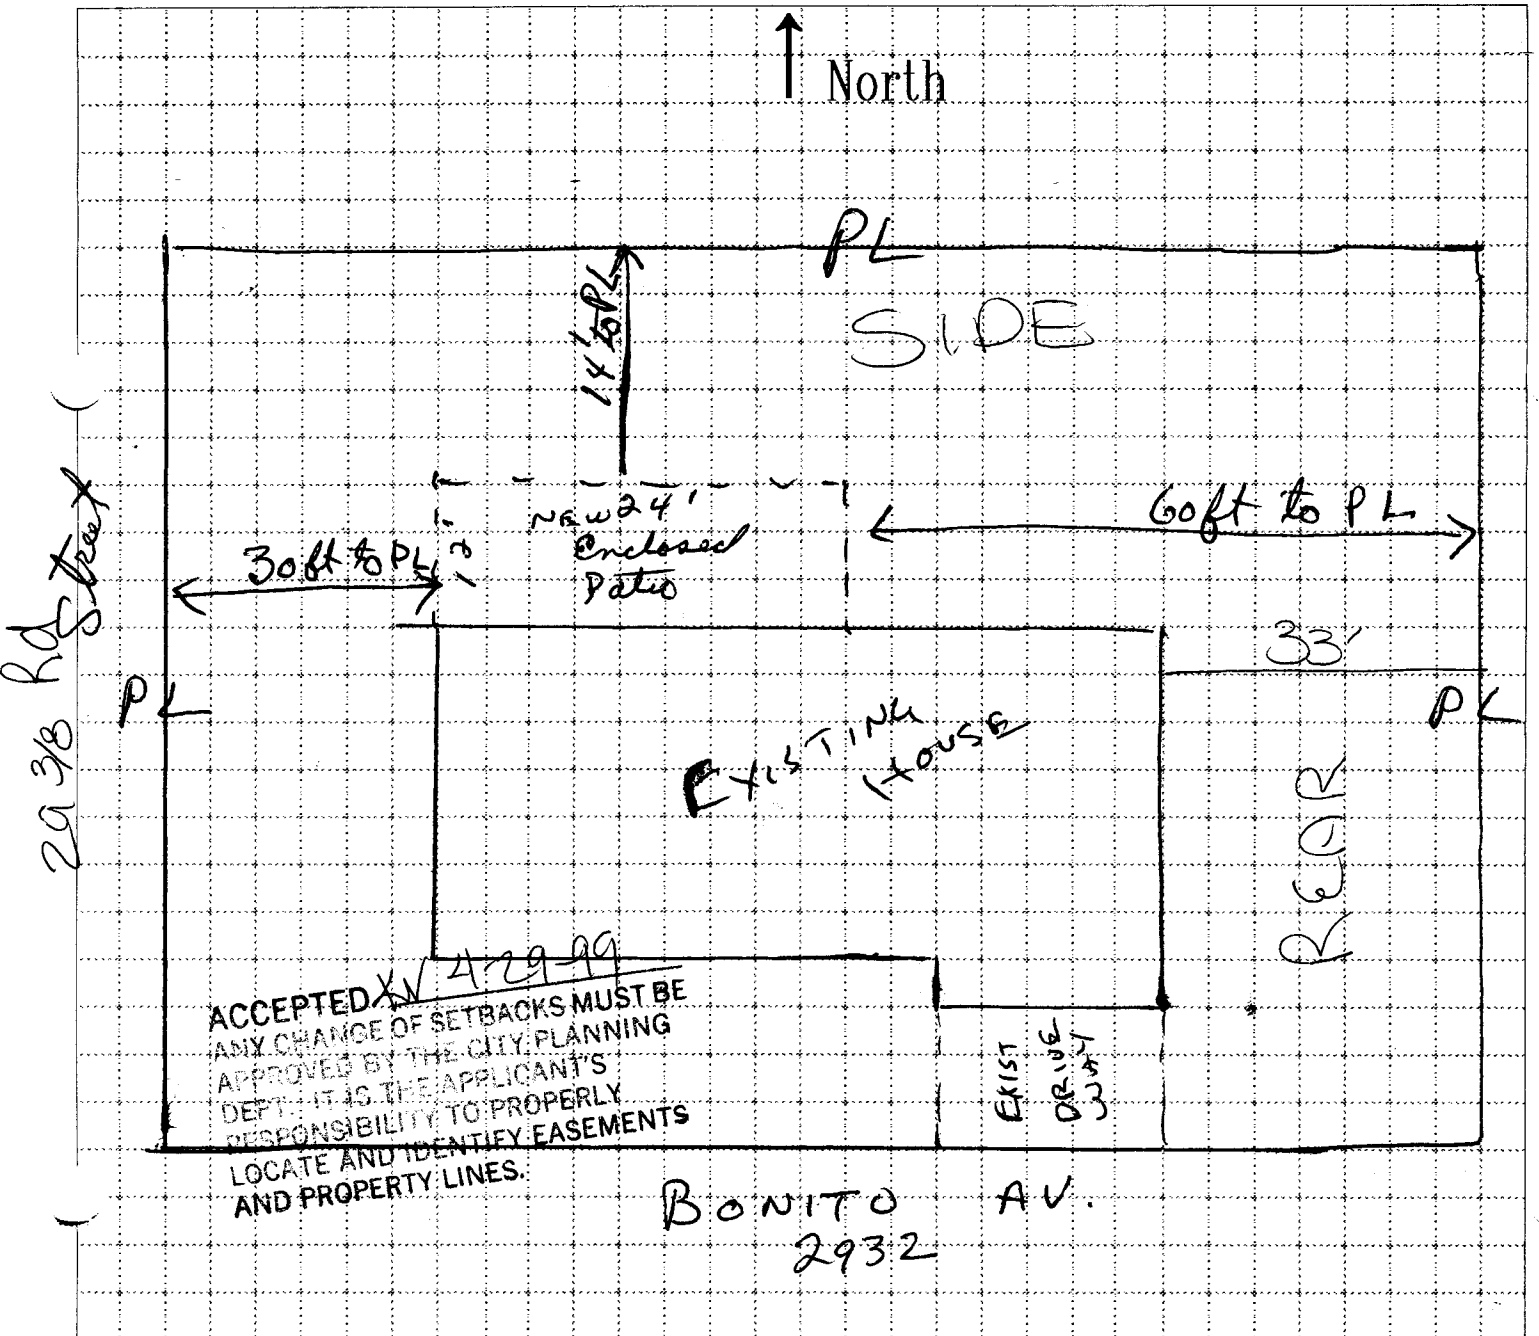 North
PL
SIDE
14' to PL
60ft to PL
NEW 24'
Enclosed
Patio
12'
30ft to PL
29 3/8 Rd
Street
33'
PL
PL
EXISTING
HOUSE
REAR
ACCEPTED 4-29-99
ANY CHANGE OF SETBACKS MUST BE
APPROVED BY THE CITY PLANNING
DEPT. IT IS THE APPLICANT'S
RESPONSIBILITY TO PROPERLY
LOCATE AND IDENTIFY EASEMENTS
AND PROPERTY LINES.
EXIST
DRIVE
WAY
BONITO AV.
2932